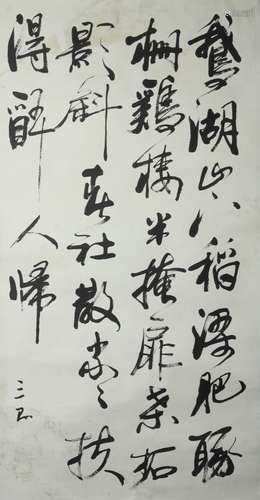 鵝湖山下稻粱肥豚
柵鷄棲半掩扉桑柘
影斜春社散家々扶
得醉人歸